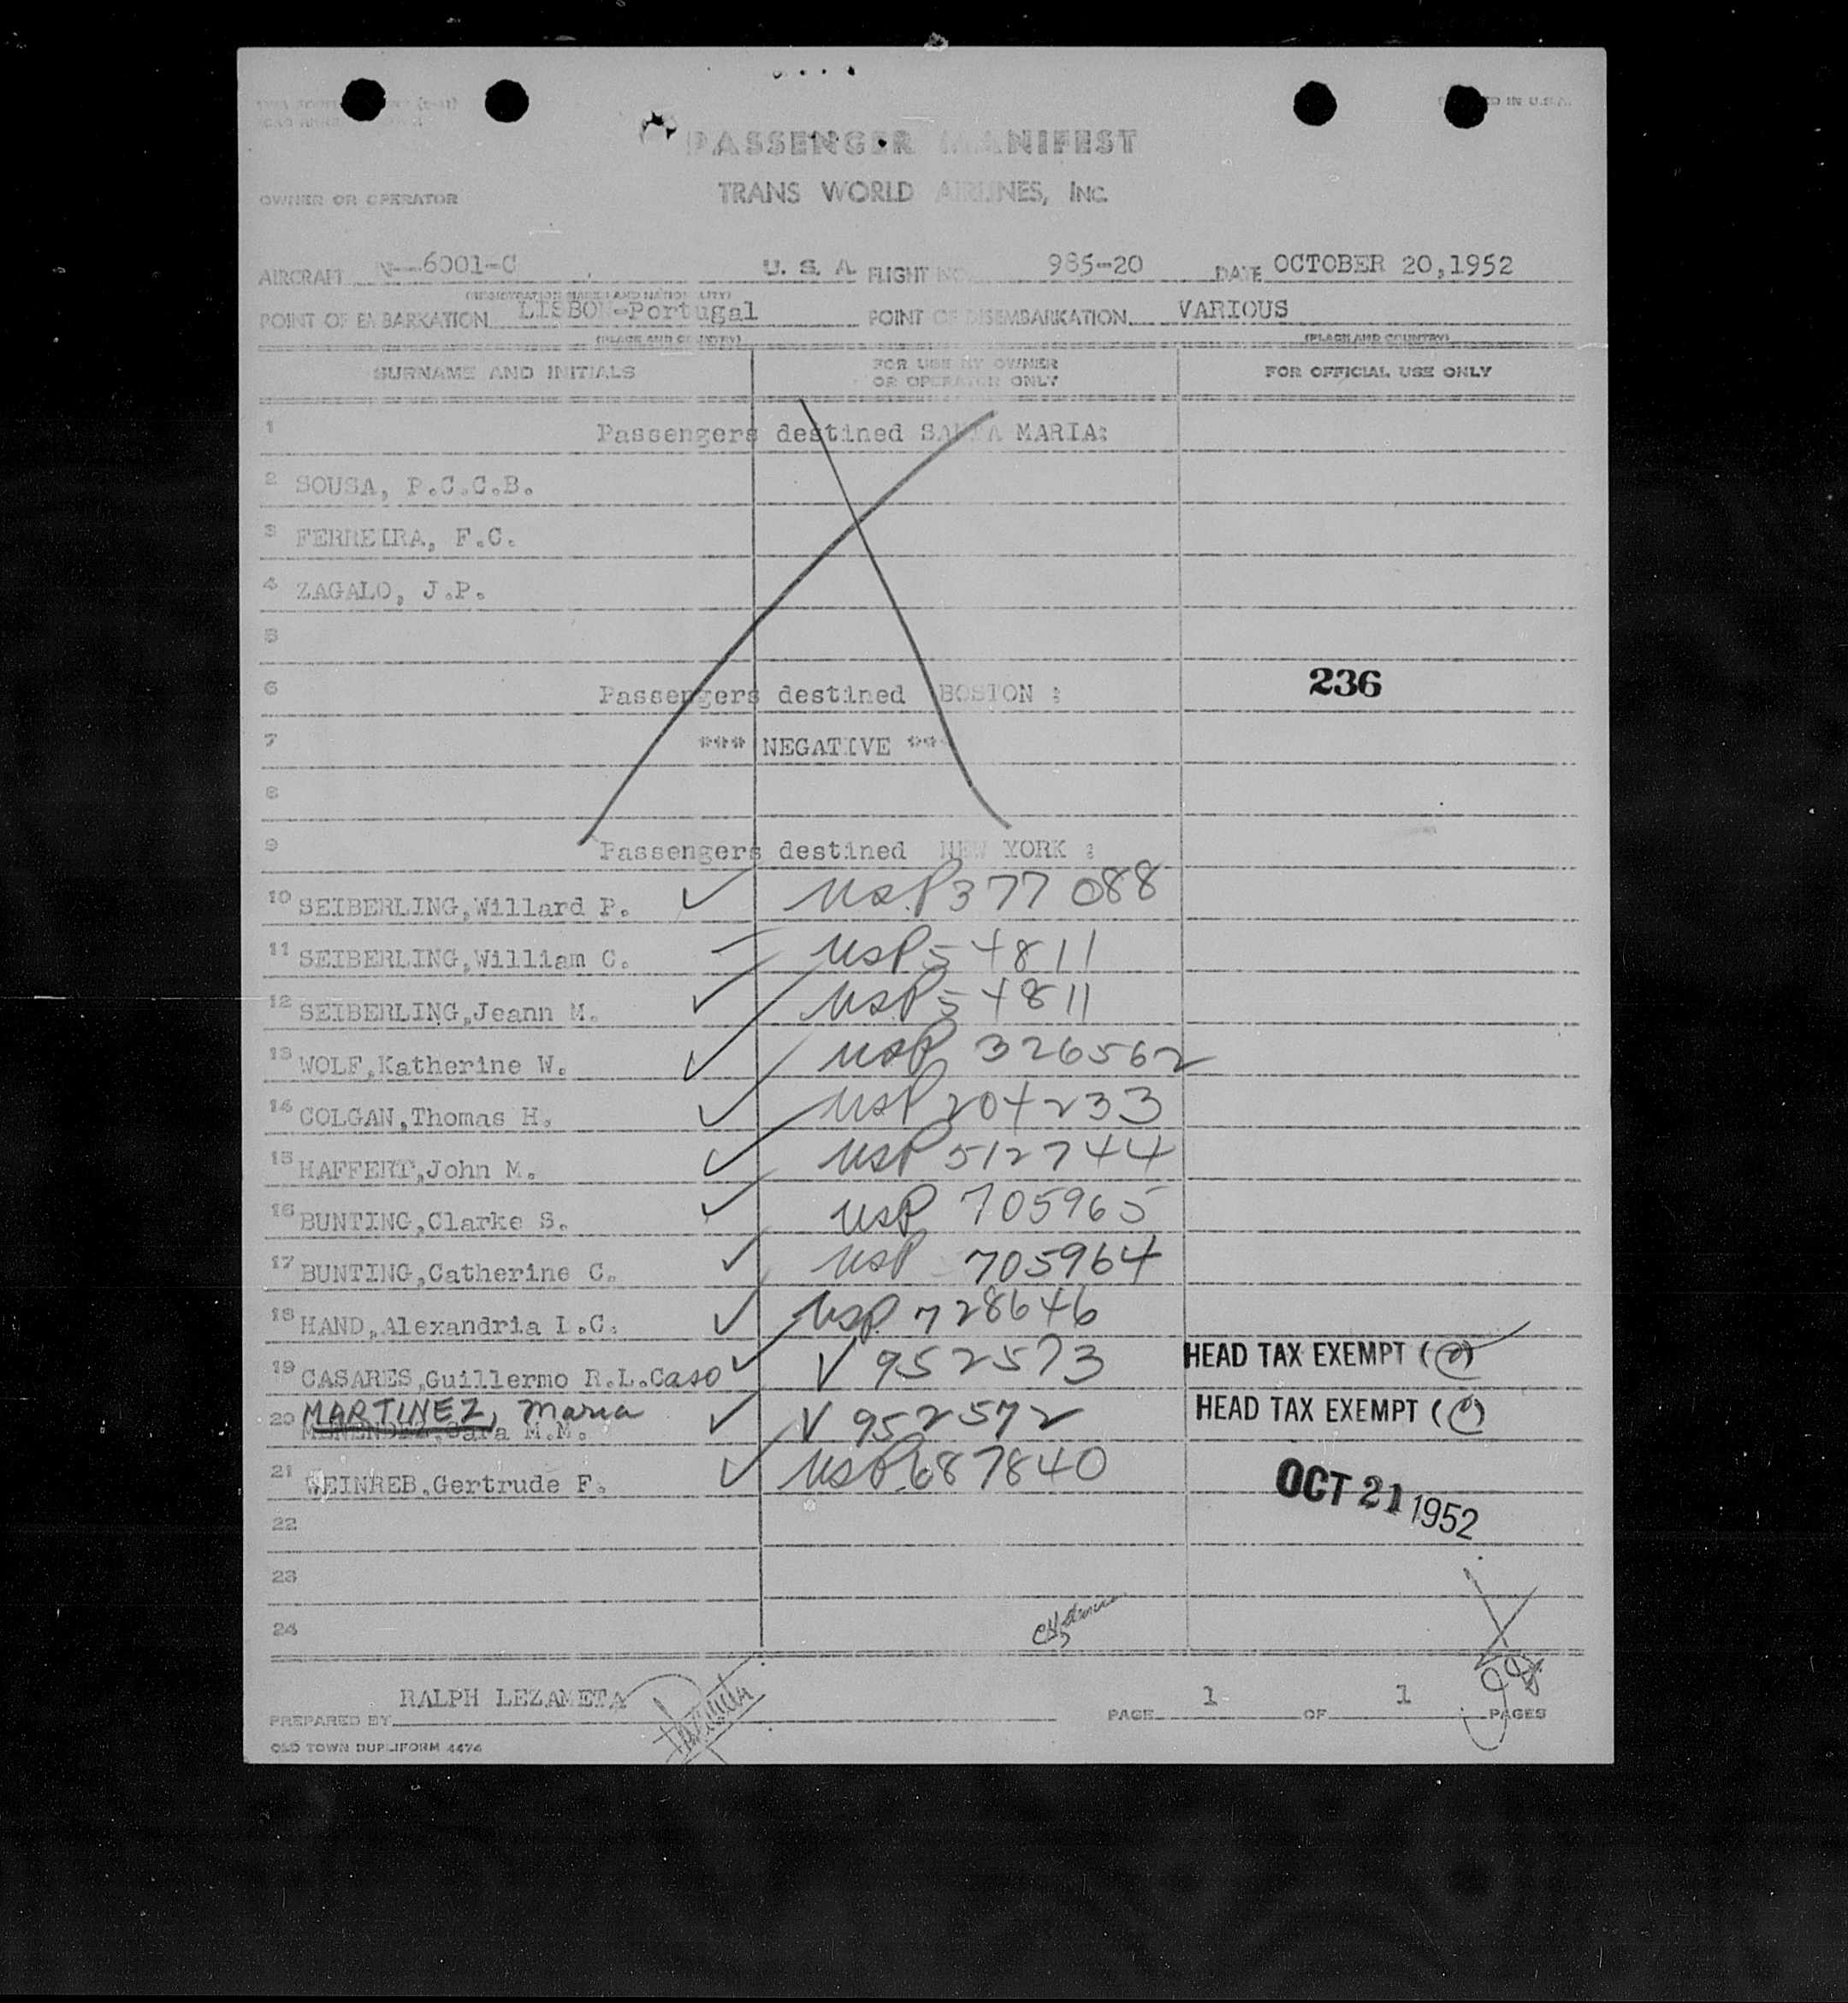 IN U.S.A.
PASSENGER MANIFEST
TRANS WORLD AIRLINES, INC.
OWNER OR OPERATOR
AIRCRAFT N-6001-C U. S. A. FLIGHT NO. 985-20 DATE OCTOBER 20,1952
(REGISTRATION MARKS AND NATIONALITY)
POINT OF EMBARKATION LISBON-Portugal POINT OF DISEMBARKATION VARIOUS
(PLACE AND COUNTRY) (PLACE AND COUNTRY)
SURNAME AND INITIALS FOR USE BY OWNER OR OPERATOR ONLY FOR OFFICIAL USE ONLY
1 Passengers destined SANTA MARIA:
2 SOUSA, P.C.C.B.
3 FERREIRA, F.C.
4 ZAGALO, J.P.
5
6 Passengers destined BOSTON : 236
7 *** NEGATIVE **
8
9 Passengers destined NEW YORK :
10 SEIBERLING,Willard P. ✓ USP 377 088
11 SEIBERLING,William C. USP 54811
12 SEIBERLING,Jeann M. ✓ USP 54811
13 WOLF,Katherine W. ✓ USP 326562
14 COLGAN,Thomas H. ✓ USP 204233
15 HAFFERT,John M. ✓ USP 512744
16 BUNTING,Clarke S. ✓ USP 705965
17 BUNTING,Catherine C. ✓ USP 705964
18 HAND,Alexandria L.C. ✓ USP 728646
19 CASARES,Guillermo R.L.Caso ✓ V 952573 HEAD TAX EXEMPT (
20 MARTINEZ, Maria ✓ V 952572 HEAD TAX EXEMPT (
MENENDEZ,Sara M.M.
21 WEINREB,Gertrude F. ✓ USP 687840
OCT 21 1952
22
23
24
PREPARED BY RALPH LEZAMETA PAGE 1 OF 1 PAGES
OLD TOWN DUPLIFORM 4474